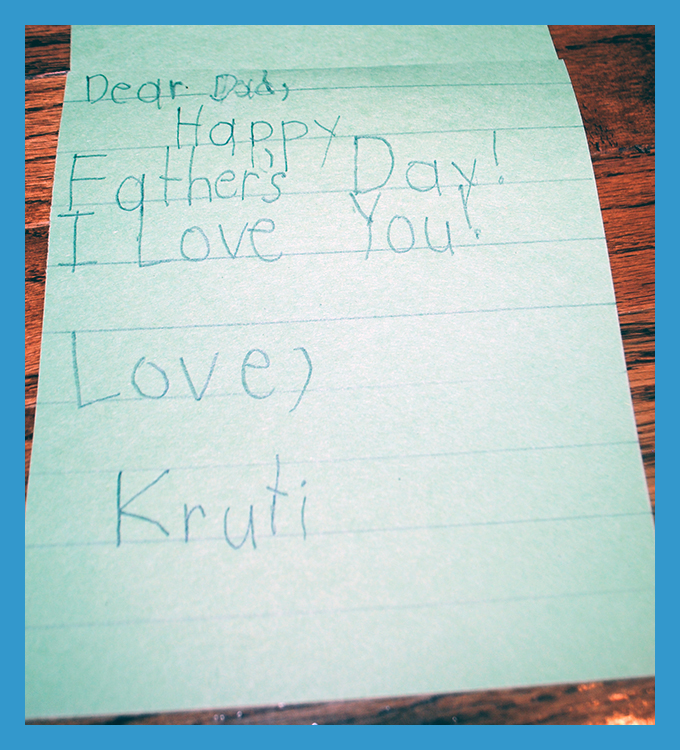 Dear Dad,
Happy
Father's Day!
I Love You!
Love,
Kruti